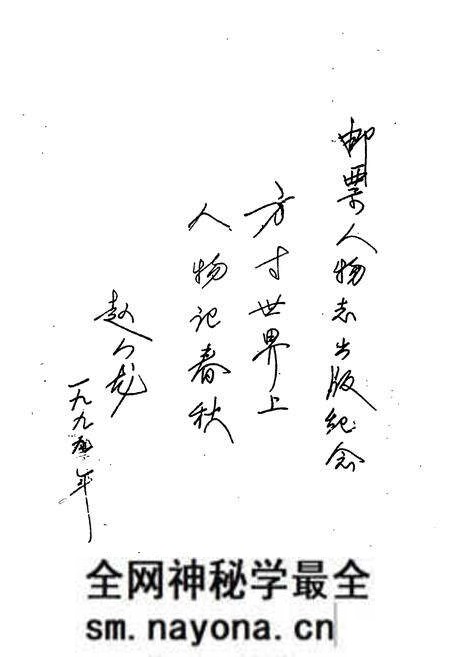 邮票人物志出版纪念
方寸世界上
人物记春秋
赵人龙
一九九五年
全网神秘学最全
sm.nayona.cn